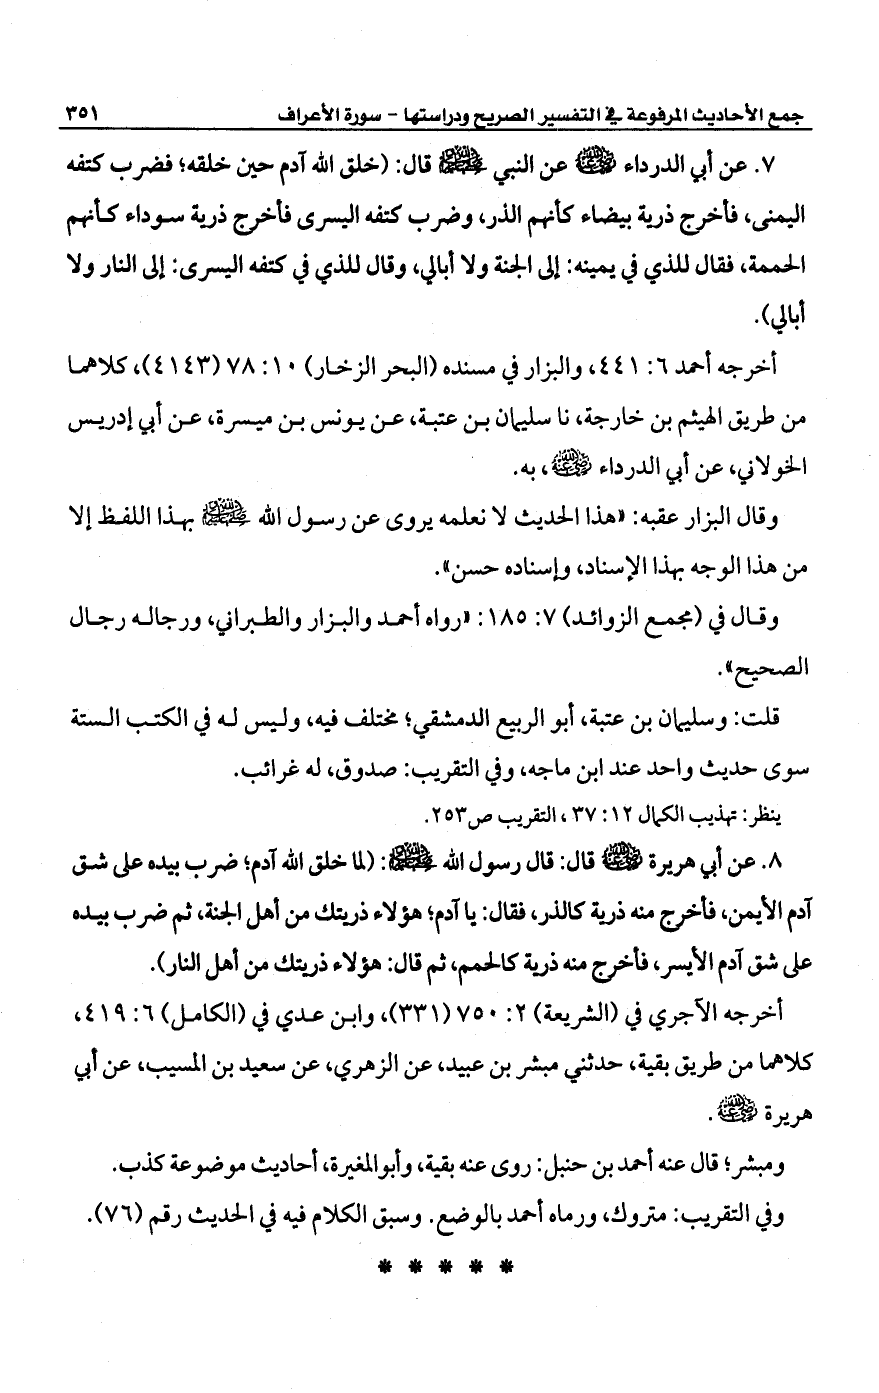 جمع الأحاديث المرفوعة في التفسير الصريح ودراستها - سورة الأعراف ٣٥١
٧. عن أبي الدرداء رضي الله عنه عن النبي ﷺ قال: (خلق الله آدم حين خلقه؛ فضرب كتفه
اليمنى، فأخرج ذرية بيضاء كأنهم الذر، وضرب كتفه اليسرى فأخرج ذرية سوداء كأنهم
الحممة، فقال للذي في يمينه: إلى الجنة ولا أبالي، وقال للذي في كتفه اليسرى: إلى النار ولا
أبالي).
أخرجه أحمد ٦: ٤٤١، والبزار في مسنده (البحر الزخار) ١٠: ٧٨ (٤١٤٣)، كلاهما
من طريق الهيثم بن خارجة، نا سليمان بن عتبة، عن يونس بن ميسرة، عن أبي إدريس
الخولاني، عن أبي الدرداء رضي الله عنه، به.
وقال البزار عقبه: «هذا الحديث لا نعلمه يروى عن رسول الله ﷺ بهذا اللفظ إلا
من هذا الوجه بهذا الإسناد، وإسناده حسن».
وقال في (مجمع الزوائد) ٧: ١٨٥: «رواه أحمد والبزار والطبراني، ورجاله رجال
الصحيح».
قلت: وسليمان بن عتبة، أبو الربيع الدمشقي؛ مختلف فيه، وليس له في الكتب الستة
سوى حديث واحد عند ابن ماجه، وفي التقريب: صدوق، له غرائب.
ينظر: تهذيب الكمال ١٢: ٣٧، التقريب ص٢٥٣.
٨. عن أبي هريرة رضي الله عنه قال: قال رسول الله ﷺ: (لما خلق الله آدم؛ ضرب بيده على شق
آدم الأيمن، فأخرج منه ذرية كالذر، فقال: يا آدم؛ هؤلاء ذريتك من أهل الجنة، ثم ضرب بيده
على شق آدم الأيسر، فأخرج منه ذرية كالحمم، ثم قال: هؤلاء ذريتك من أهل النار).
أخرجه الآجري في (الشريعة) ٢: ٧٥٠ (٣٣١)، وابن عدي في (الكامل) ٦: ٤١٩،
كلاهما من طريق بقية، حدثني مبشر بن عبيد، عن الزهري، عن سعيد بن المسيب، عن أبي
هريرة رضي الله عنه.
ومبشر؛ قال عنه أحمد بن حنبل: روى عنه بقية، وأبوالمغيرة، أحاديث موضوعة كذب.
وفي التقريب: متروك، ورماه أحمد بالوضع. وسبق الكلام فيه في الحديث رقم (٧٦).
* * * * *